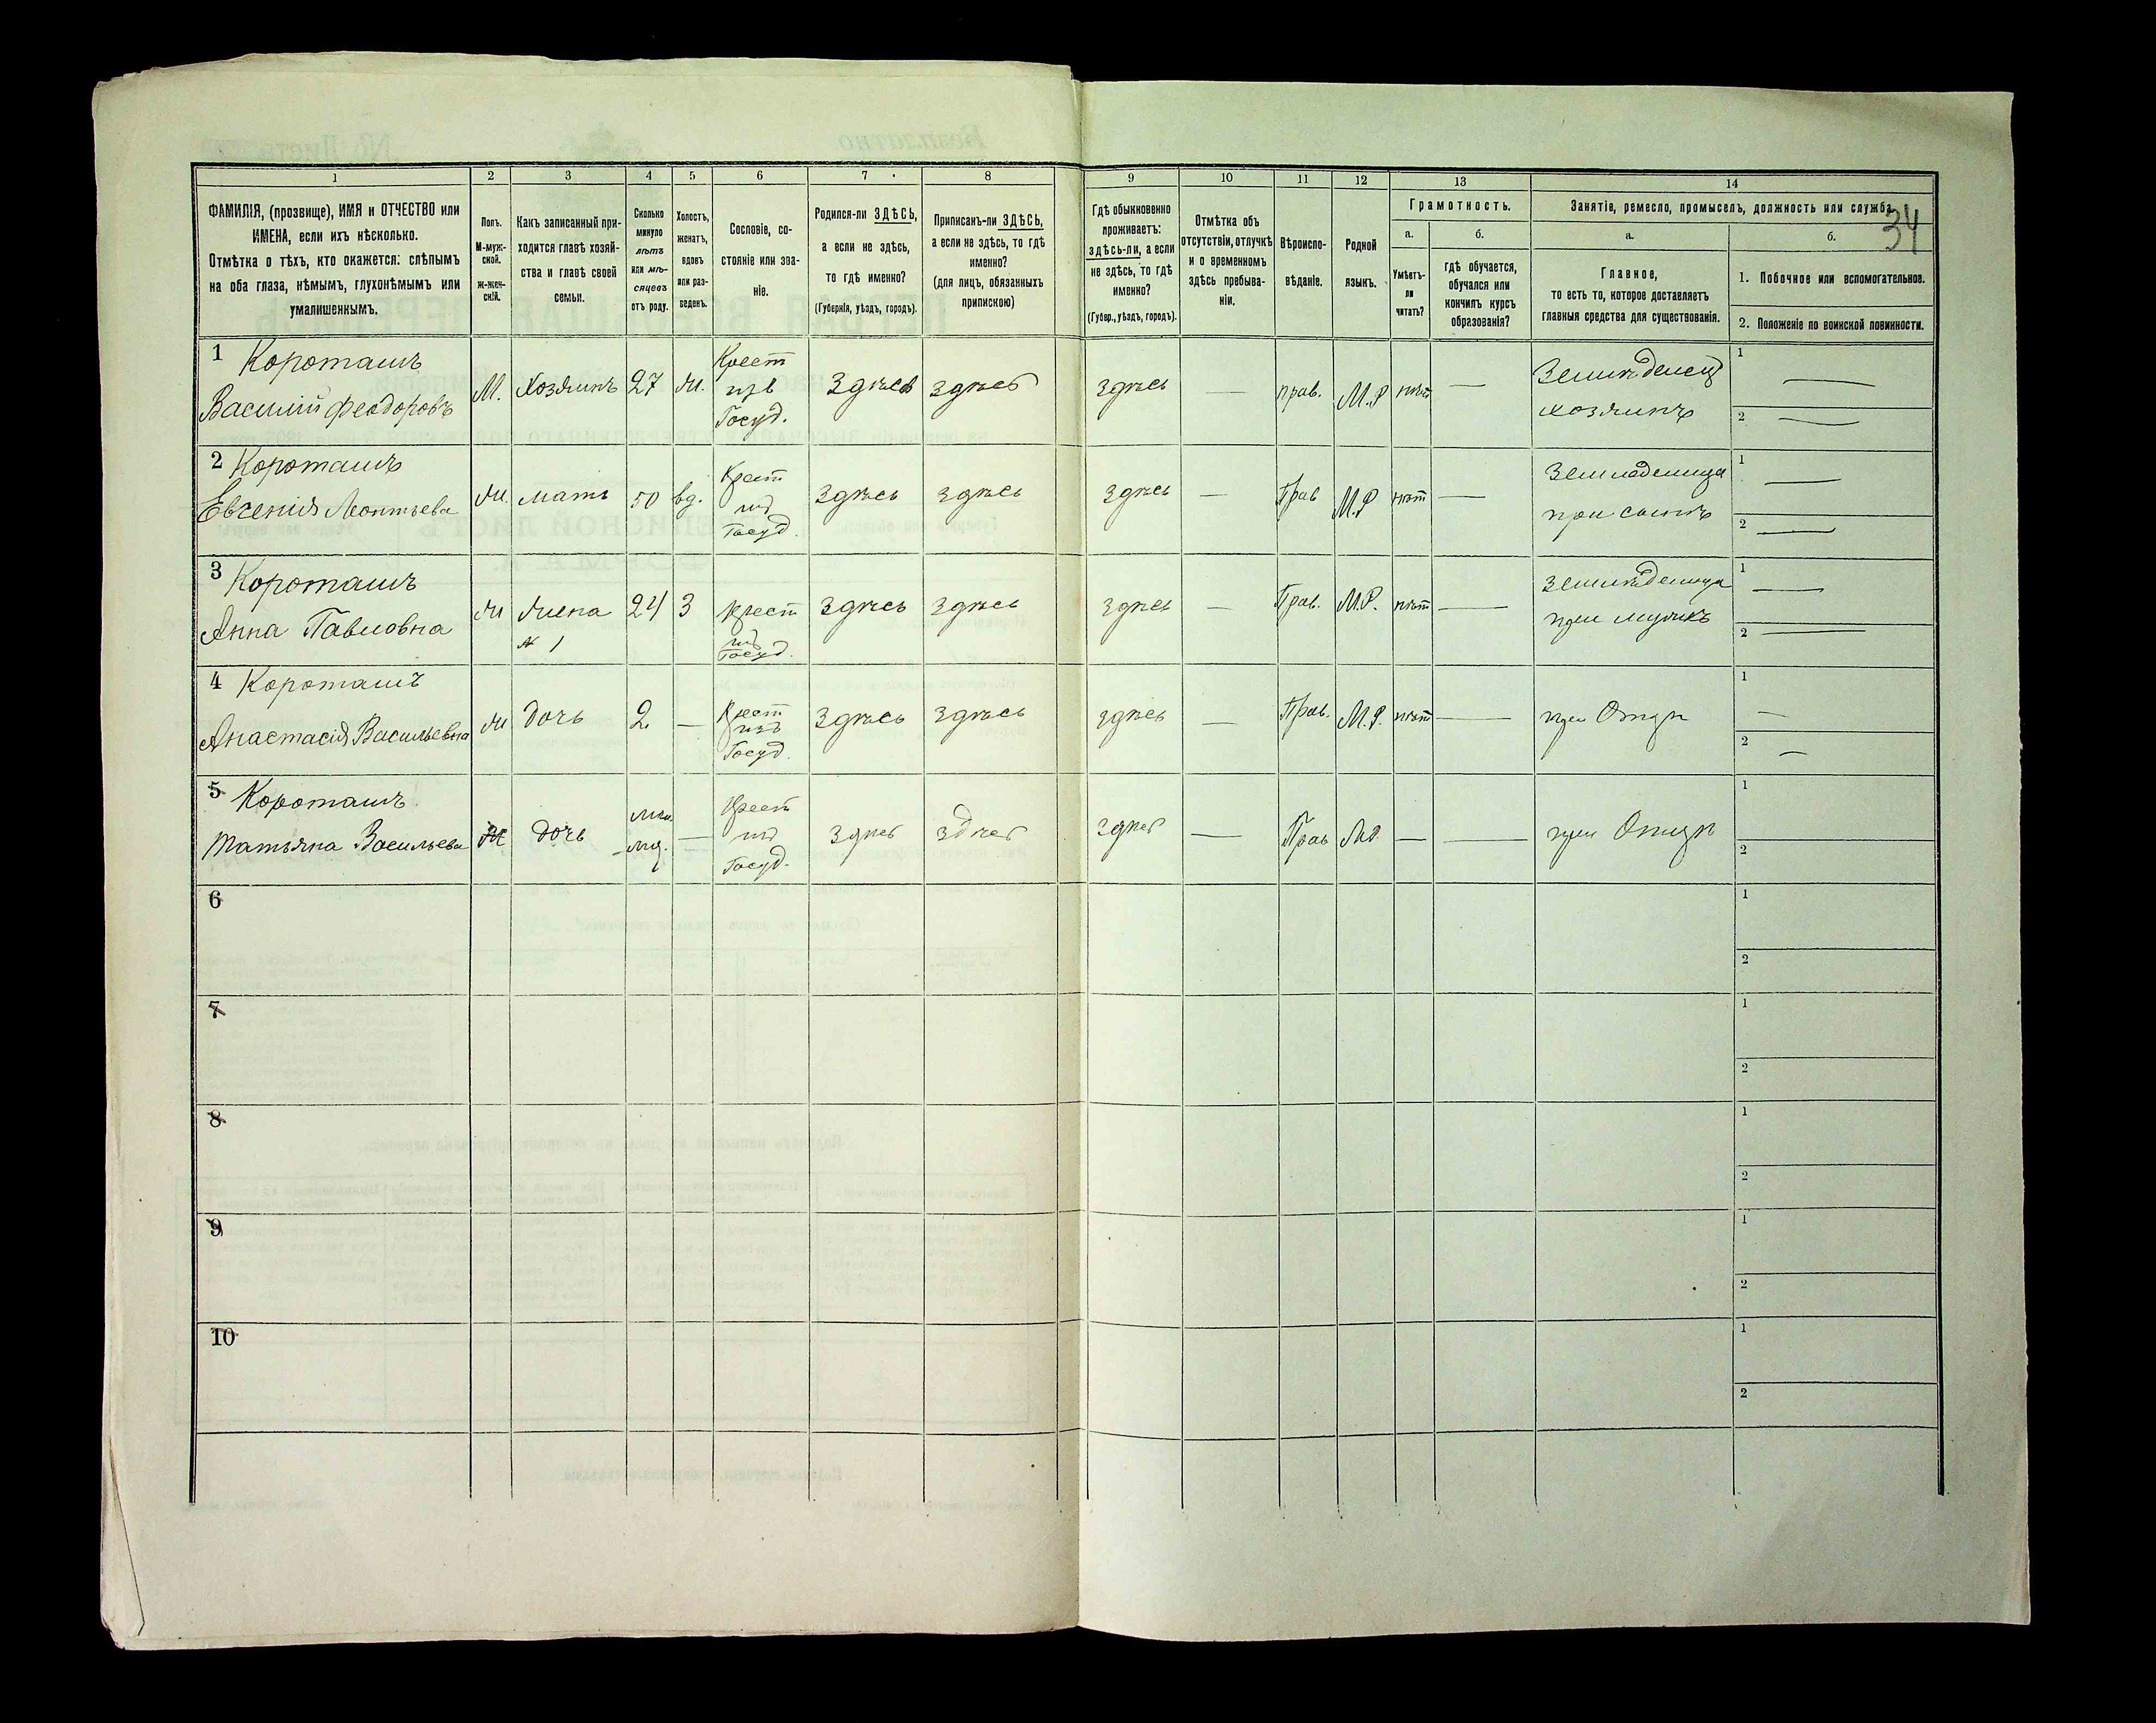 34
1
2
3
4
5
6
7
8
9
10
11
12
13
14
ФАМИЛІЯ, (прозвище), ИМЯ и ОТЧЕСТВО или
ИМЕНА, если ихъ нѣсколько.
Отмѣтка о тѣхъ, кто окажется: слѣпымъ
на оба глаза, нѣмымъ, глухонѣмымъ или
умалишеннымъ.
Полъ.
М-муж-
ской.
ж-жен-
скій.
Какъ записанный при-
ходится главѣ хозяй-
ства и главѣ своей
семьи.
Сколько
минуло
лѣтъ
или мѣ-
сяцевъ
отъ роду.
Холостъ,
женатъ,
вдовъ
или раз-
веденъ.
Сословіе, со-
стояніе или зва-
ніе.
Родился-ли ЗДѢСЬ,
а если не здѣсь,
то гдѣ именно?
(Губернія, уѣздъ, городъ).
Приписанъ-ли ЗДѢСЬ,
а если не здѣсь, то гдѣ
именно?
(для лицъ, обязанныхъ
припискою)
Гдѣ обыкновенно
проживаетъ:
здѣсь-ли, а если
не здѣсь, то гдѣ
именно?
(Губер., уѣздъ, городъ).
Отмѣтка объ
отсутствіи, отлучкѣ
и о временномъ
здѣсь пребыва-
ніи.
Вѣроиспо-
вѣданіе.
Родной
языкъ.
Грамотность.
а.
Умѣетъ-
ли
читать?
б.
гдѣ обучается,
обучался или
кончилъ курсъ
образованія?
Занятіе, ремесло, промыселъ, должность или служба
а.
Главное,
то есть то, которое доставляетъ
главныя средства для существованія.
б.
1. Побочное или вспомогательное.
2. Положеніе по воинской повинности.
1 Короташъ
Василій Феодоровъ
М.
Хозяинъ
27
ж.
Крест
изъ
Госуд.
Здѣсь
здѣсь
здѣсь
—
прав.
М.Р
нѣт
—
Земледѣлец
хозяинъ
1 —
2 —
2 Короташъ
Евгенія Леонтьева
Ж.
мать
50
вд.
Крест
изъ
Госуд.
Здѣсь
здѣсь
здѣсь
—
Прав
М.Р
нѣт
—
при сынѣ
1 —
2 —
3 Короташъ
Анна Павловна
Ж
Жена
№ 1
24
З
Крест
изъ
Госуд.
Здѣсь
Здѣсь
здѣсь
—
Прав.
М.Р.
нѣт
—
при мужѣ
1 —
2 —
4 Короташъ
Анастасія Васильевна
Ж
дочь
2
—
Крест
изъ
Госуд.
Здѣсь
здѣсь
здѣсь
—
Прав.
М.Р.
нѣт
—
при Отцѣ
1 —
2 —
5 Короташъ
Татьяна Васильева
Ж
дочь
—
Крест
изъ
Госуд.
Здѣсь
здѣсь
здѣсь
—
Прав
М.Р.
—
—
при Отцѣ
1
2
6
1
2
7
1
2
8
1
2
9
1
2
10
1
2